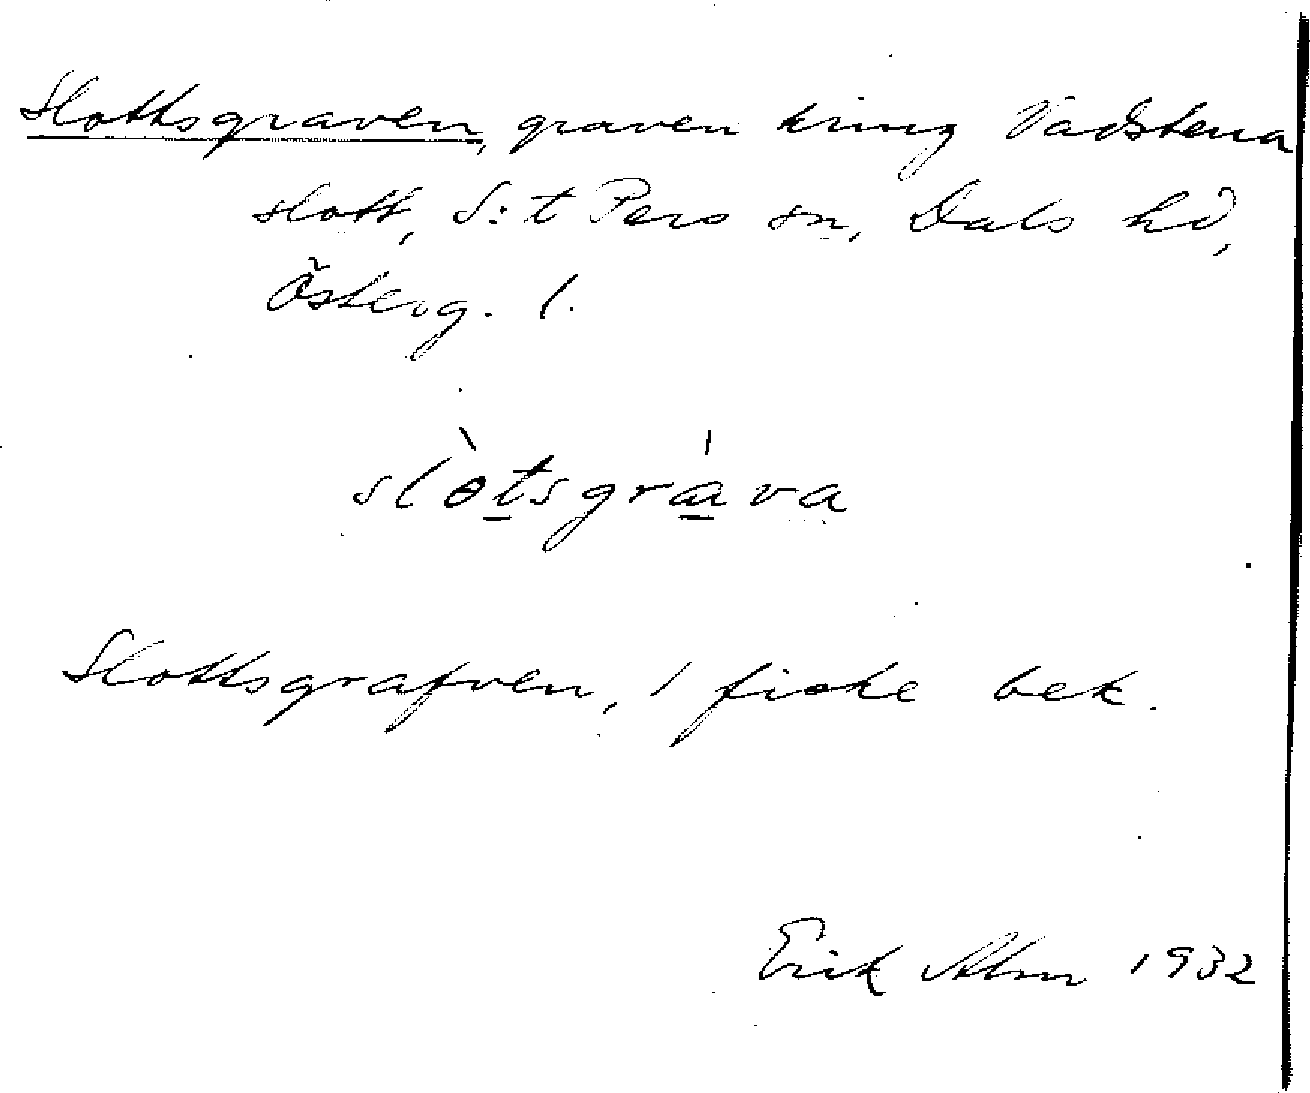 Slottsgraven, graven kring Vadstena
slott, S:t Pers sn, Dals hd,
Österg. l.
slòtsgráva
Slottsgrafven, 1 fiske bek.
Erik Alm 1932